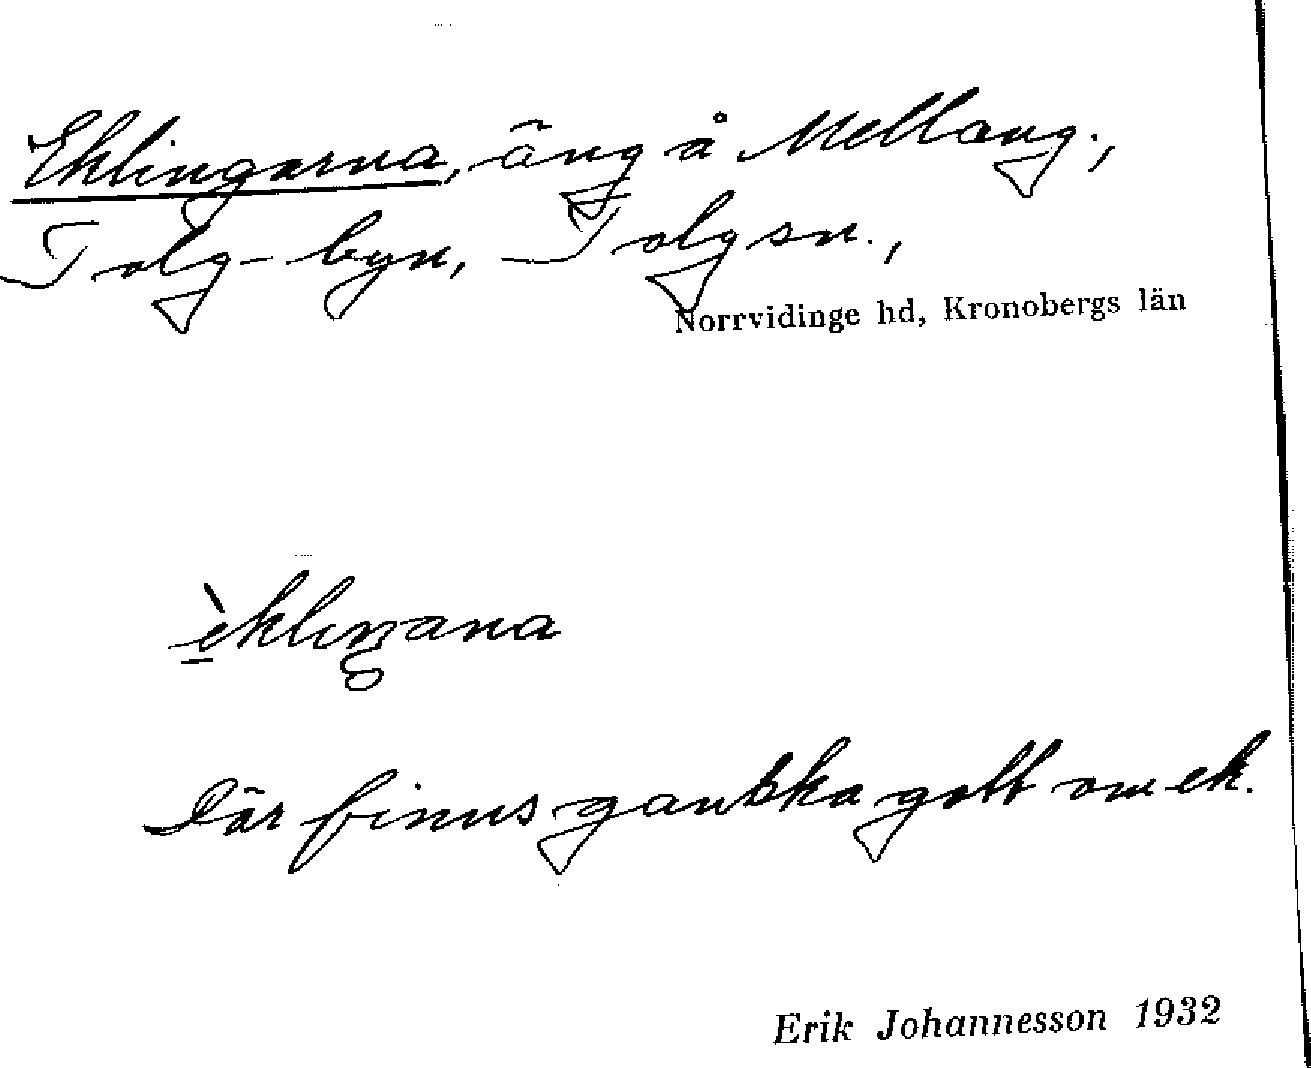 Eklingarna, äng å Mellang.,
Tolg-byn, Tolg sn.,
Norrvidinge hd, Kronobergs län
èklıŋana
Där finns ganska gott om ek.
Erik Johannesson 1932